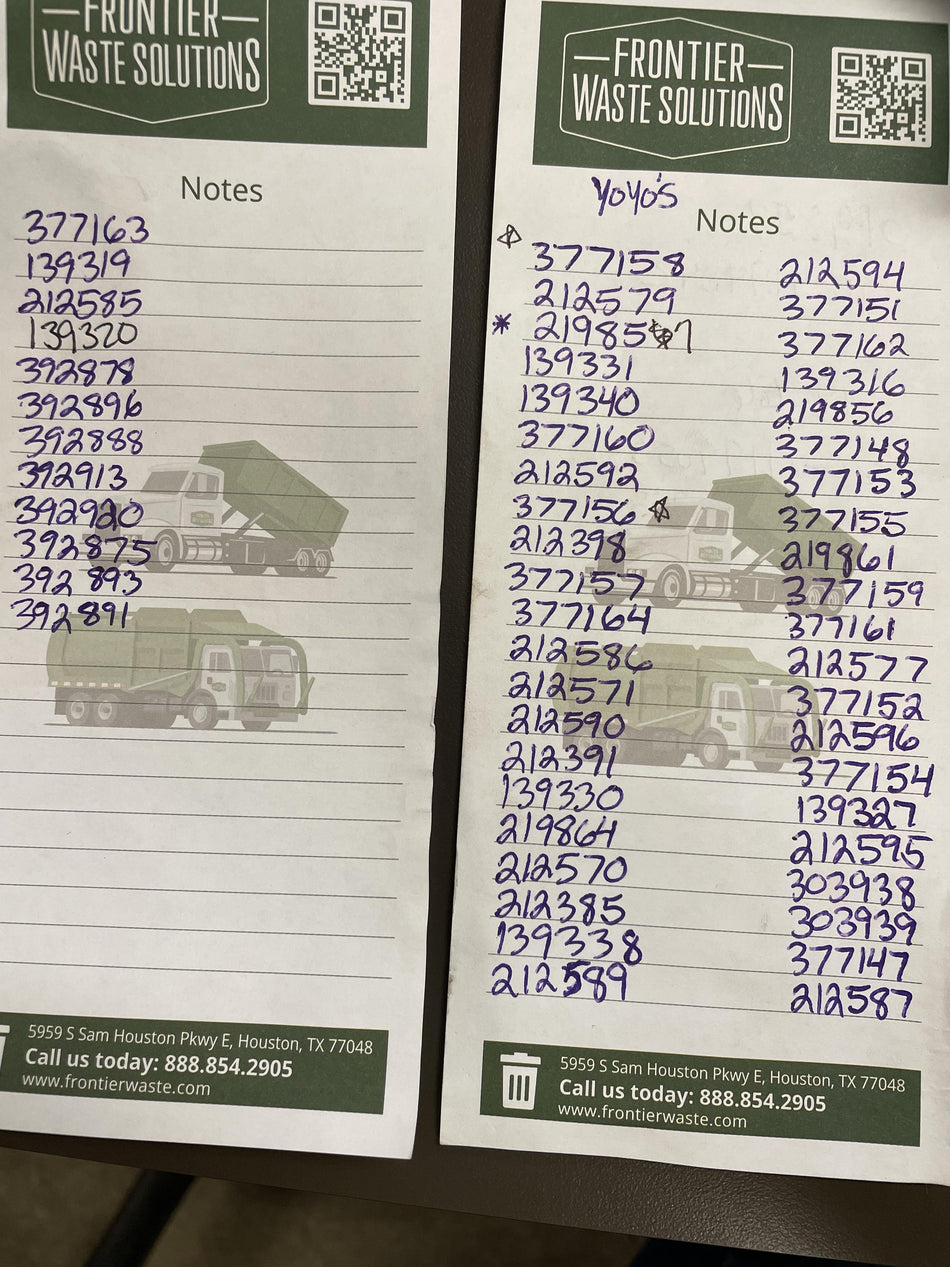 FRONTIER
WASTE SOLUTIONS
Notes
377163
139319
212585
139320
392878
392896
392888
392913
392920
392875
392893
392891
5959 S Sam Houston Pkwy E, Houston, TX 77048
Call us today: 888.854.2905
www.frontierwaste.com
FRONTIER
WASTE SOLUTIONS
YOYO'S
Notes
377158
212579
219857
139331
139340
377160
212592
377156
212398
377157
377164
212586
212571
212590
212391
139330
219864
212570
212385
139338
212589
212594
377151
377162
139316
219856
377148
377153
377155
219861
377159
377161
212577
377152
212596
377154
139327
212595
303938
303939
377147
212587
5959 S Sam Houston Pkwy E, Houston, TX 77048
Call us today: 888.854.2905
www.frontierwaste.com